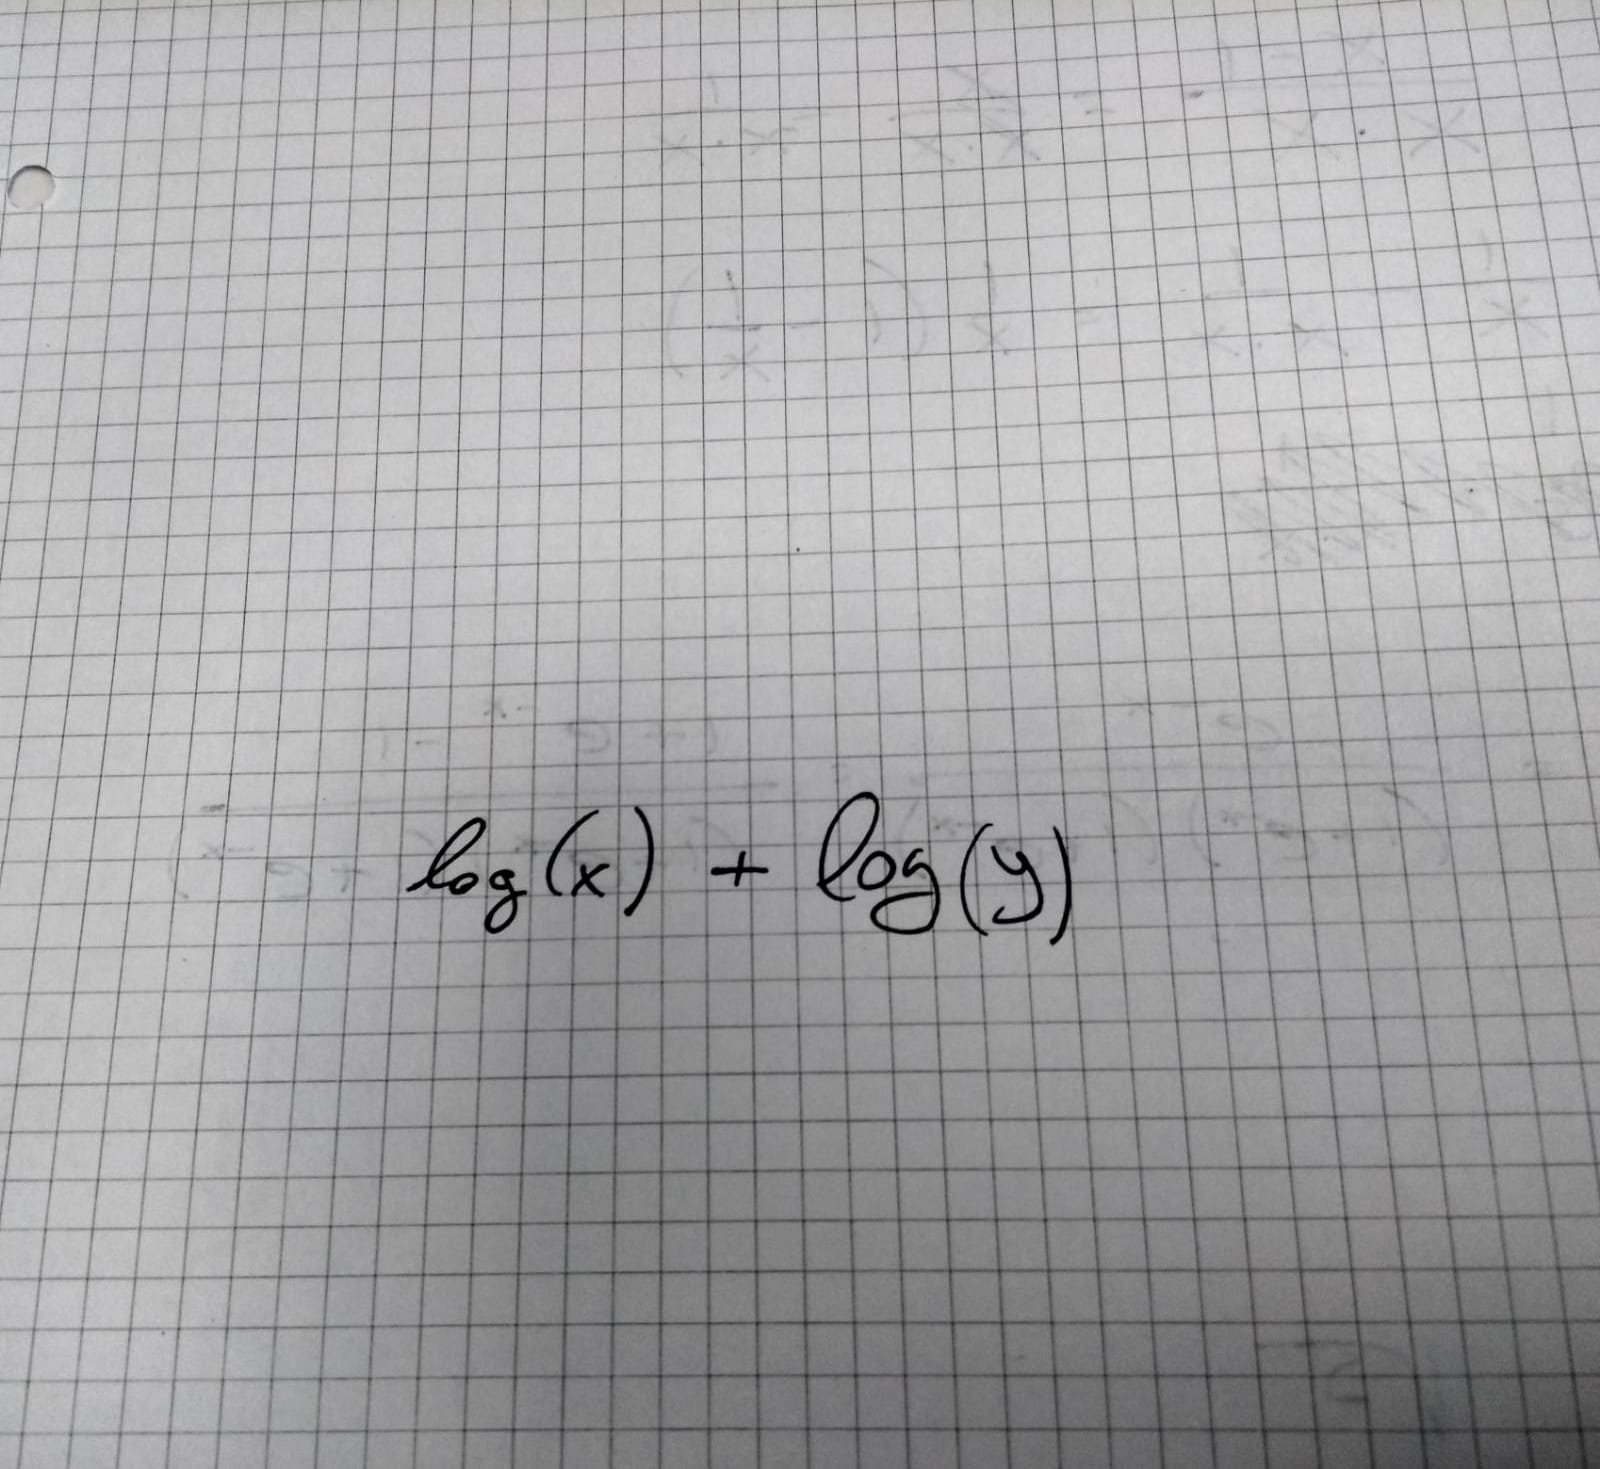 log(x) + log(y)